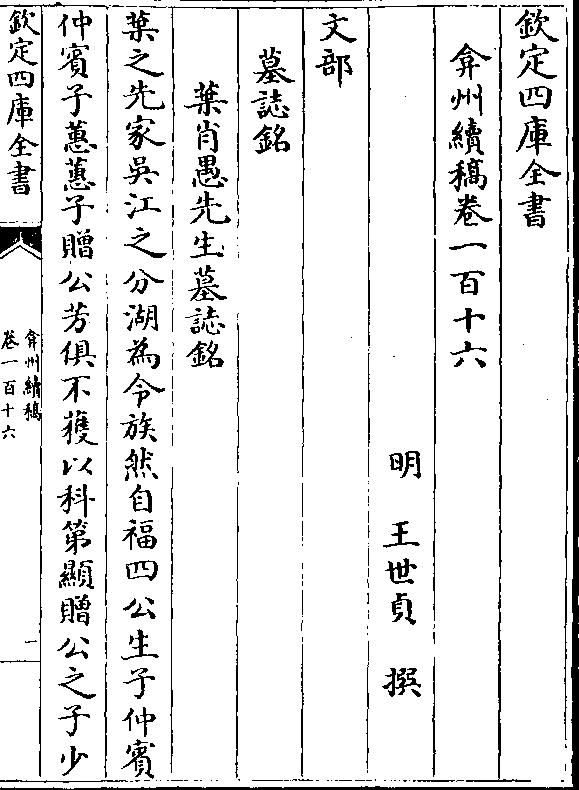 欽定四庫全書
弇州續稿卷一百十六
明 王世貞 撰
文部
墓誌銘
葉肖愚先生墓誌銘
葉之先家吳江之分湖為令族然自福四公生子仲賓
仲賓子蕙蕙子贈公芳俱不獲以科第顯贈公之子少
欽定四庫全書
弇州續稿
卷一百十六
一